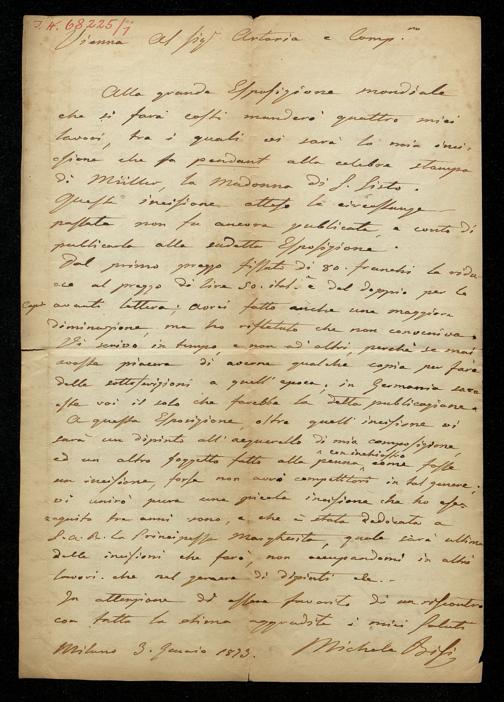 I.N. 68225/1
Vienna Al Sigr Artaria e Comp.
Alla grande Esposizione mondiale
che si farà costì manderò quattro miei
lavori, tra i quali vi sarà la mia inci-
sione che fa pendant alla celebre stampa
di Müller, la Madonna di S. Sisto.
Questa incisione attese le circostanze
passate non fu ancora publicata, e conto di
publicarla alla sudetta Esposizione.
Dal primo prezzo fissato di 80. franchi la ridu-
co al prezzo di lire 50. ital. e del doppio per le
Copie
avanti lettera; avrei fatto anche una maggiore
diminuzione, ma ho riflettuto che non conveniva.
Vi scrivo in tempo, e non ad altri, perchè se mai
aveste piacere di averne qualche copia per fare
delle sottoscrizioni a quell'epoca; in Germania sare-
ste voi il solo che farebbe la detta publicazione.
A questa Esposizione, oltre quell'incisione vi
sarà un dipinto all'acquerello di mia composizione,
ed un altro soggetto fatto alla penna, con inchiostro come fosse
un incisione, forse non avrò competitori in tal genere;
vi unirò pure una piccola incisione che ho ese-
guito tre anni sono, e che è stata dedicata a
S.A.R. la Principessa Margherita, quale sarà ultima
delle incisioni che farò, non occupandomi in altri
lavori che nel genere di dipinti ec.
In attenzione di essere favorito di un riscontro
con tutta la stima aggradite i miei saluti
Milano 3. Genaio 1873. Michele Bisi